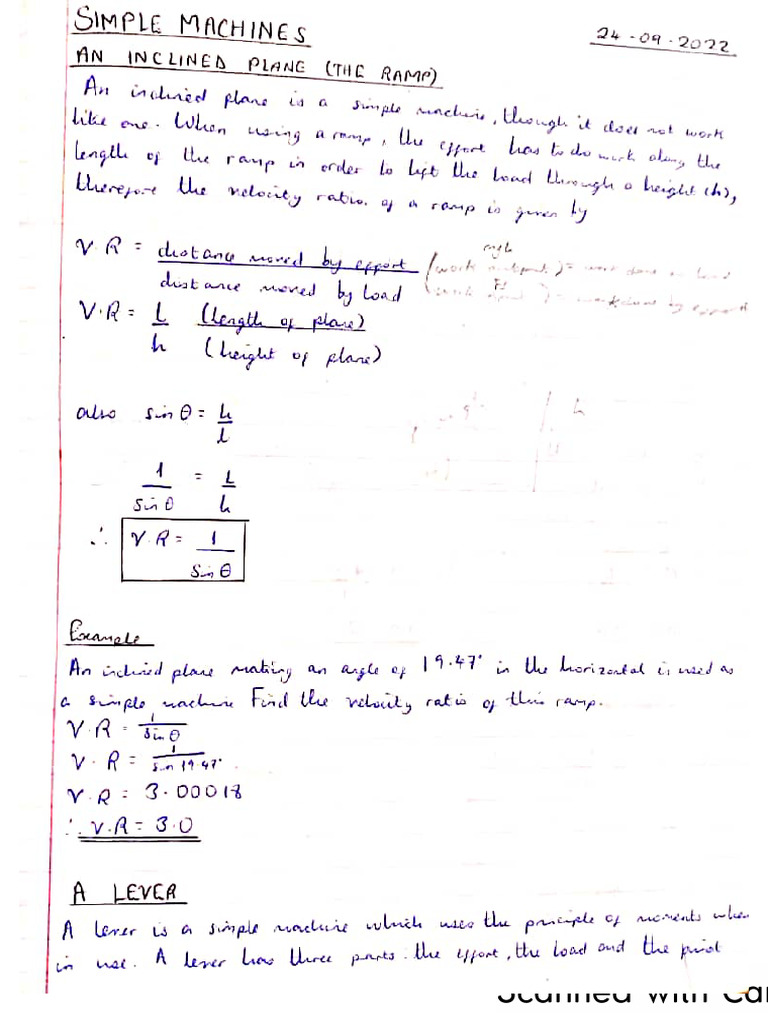 SIMPLE MACHINES
24-09-2022
AN INCLINED PLANE (THE RAMP)
An inclined plane is a simple machine, though it does not work
like one. When using a ramp, the effort has to do work along the
length of the ramp in order to lift the load through a height (h),
therefore the velocity ratio of a ramp is given by
V R = distance moved by effort
distance moved by load
V.R = L (length of plane)
h (height of plane)
also sin θ = h
L
1 = L
sin θ h
∴ V.R = 1
sin θ
h
Example
An inclined plane making an angle of 19.47° in the horizontal is used as
a simple machine Find the velocity ratio of this ramp.
V.R = 1
sin θ
V.R = 1
sin 19.47°
V.R = 3.00018
∴ V.R = 3.0
A LEVER
A lever is a simple machine which uses the principle of moments when
in use. A lever has three parts: the effort, the load and the pivot
Scanned with Ca